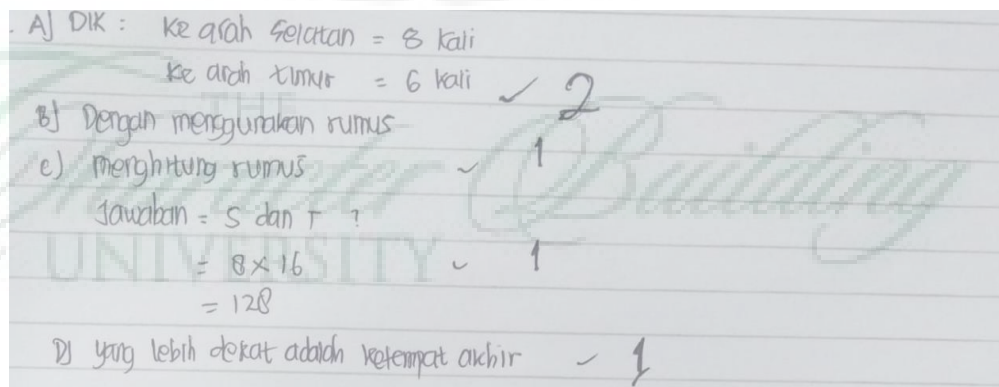 A] DIK : Ke arah Selatan = 8 kali
Ke arah timur = 6 kali ✓ 2
B] Dengan menggunakan rumus
c) menghitung rumus ✓ 1
Jawaban = S dan T ?
= 8 × 16 ✓ 1
= 128
D] yang lebih dekat adalah ketempat akhir ✓ 1
THE
Character Building
UNIVERSITY